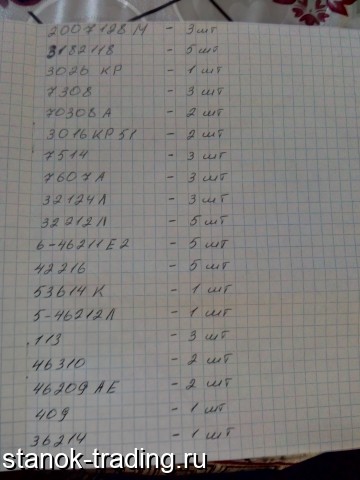 2007128 М - 3 шт
3182118 - 5 шт
3026 КР - 1 шт
7308 - 3 шт
70308 А - 2 шт
3016 КР 51 - 2 шт
7514 - 3 шт
7607 А - 3 шт
32124Л - 3 шт
32212Л - 5 шт
6-46211Е2 - 5 шт
42216 - 5 шт
53614 К - 1 шт
5-46212Л - 1 шт
113 - 3 шт
46310 - 2 шт
46209 АЕ - 2 шт
409 - 1 шт
36214 - 1 шт
stanok-trading.ru